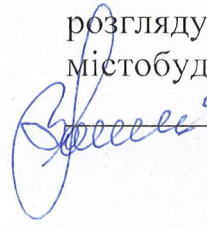 розгляду
містобуд